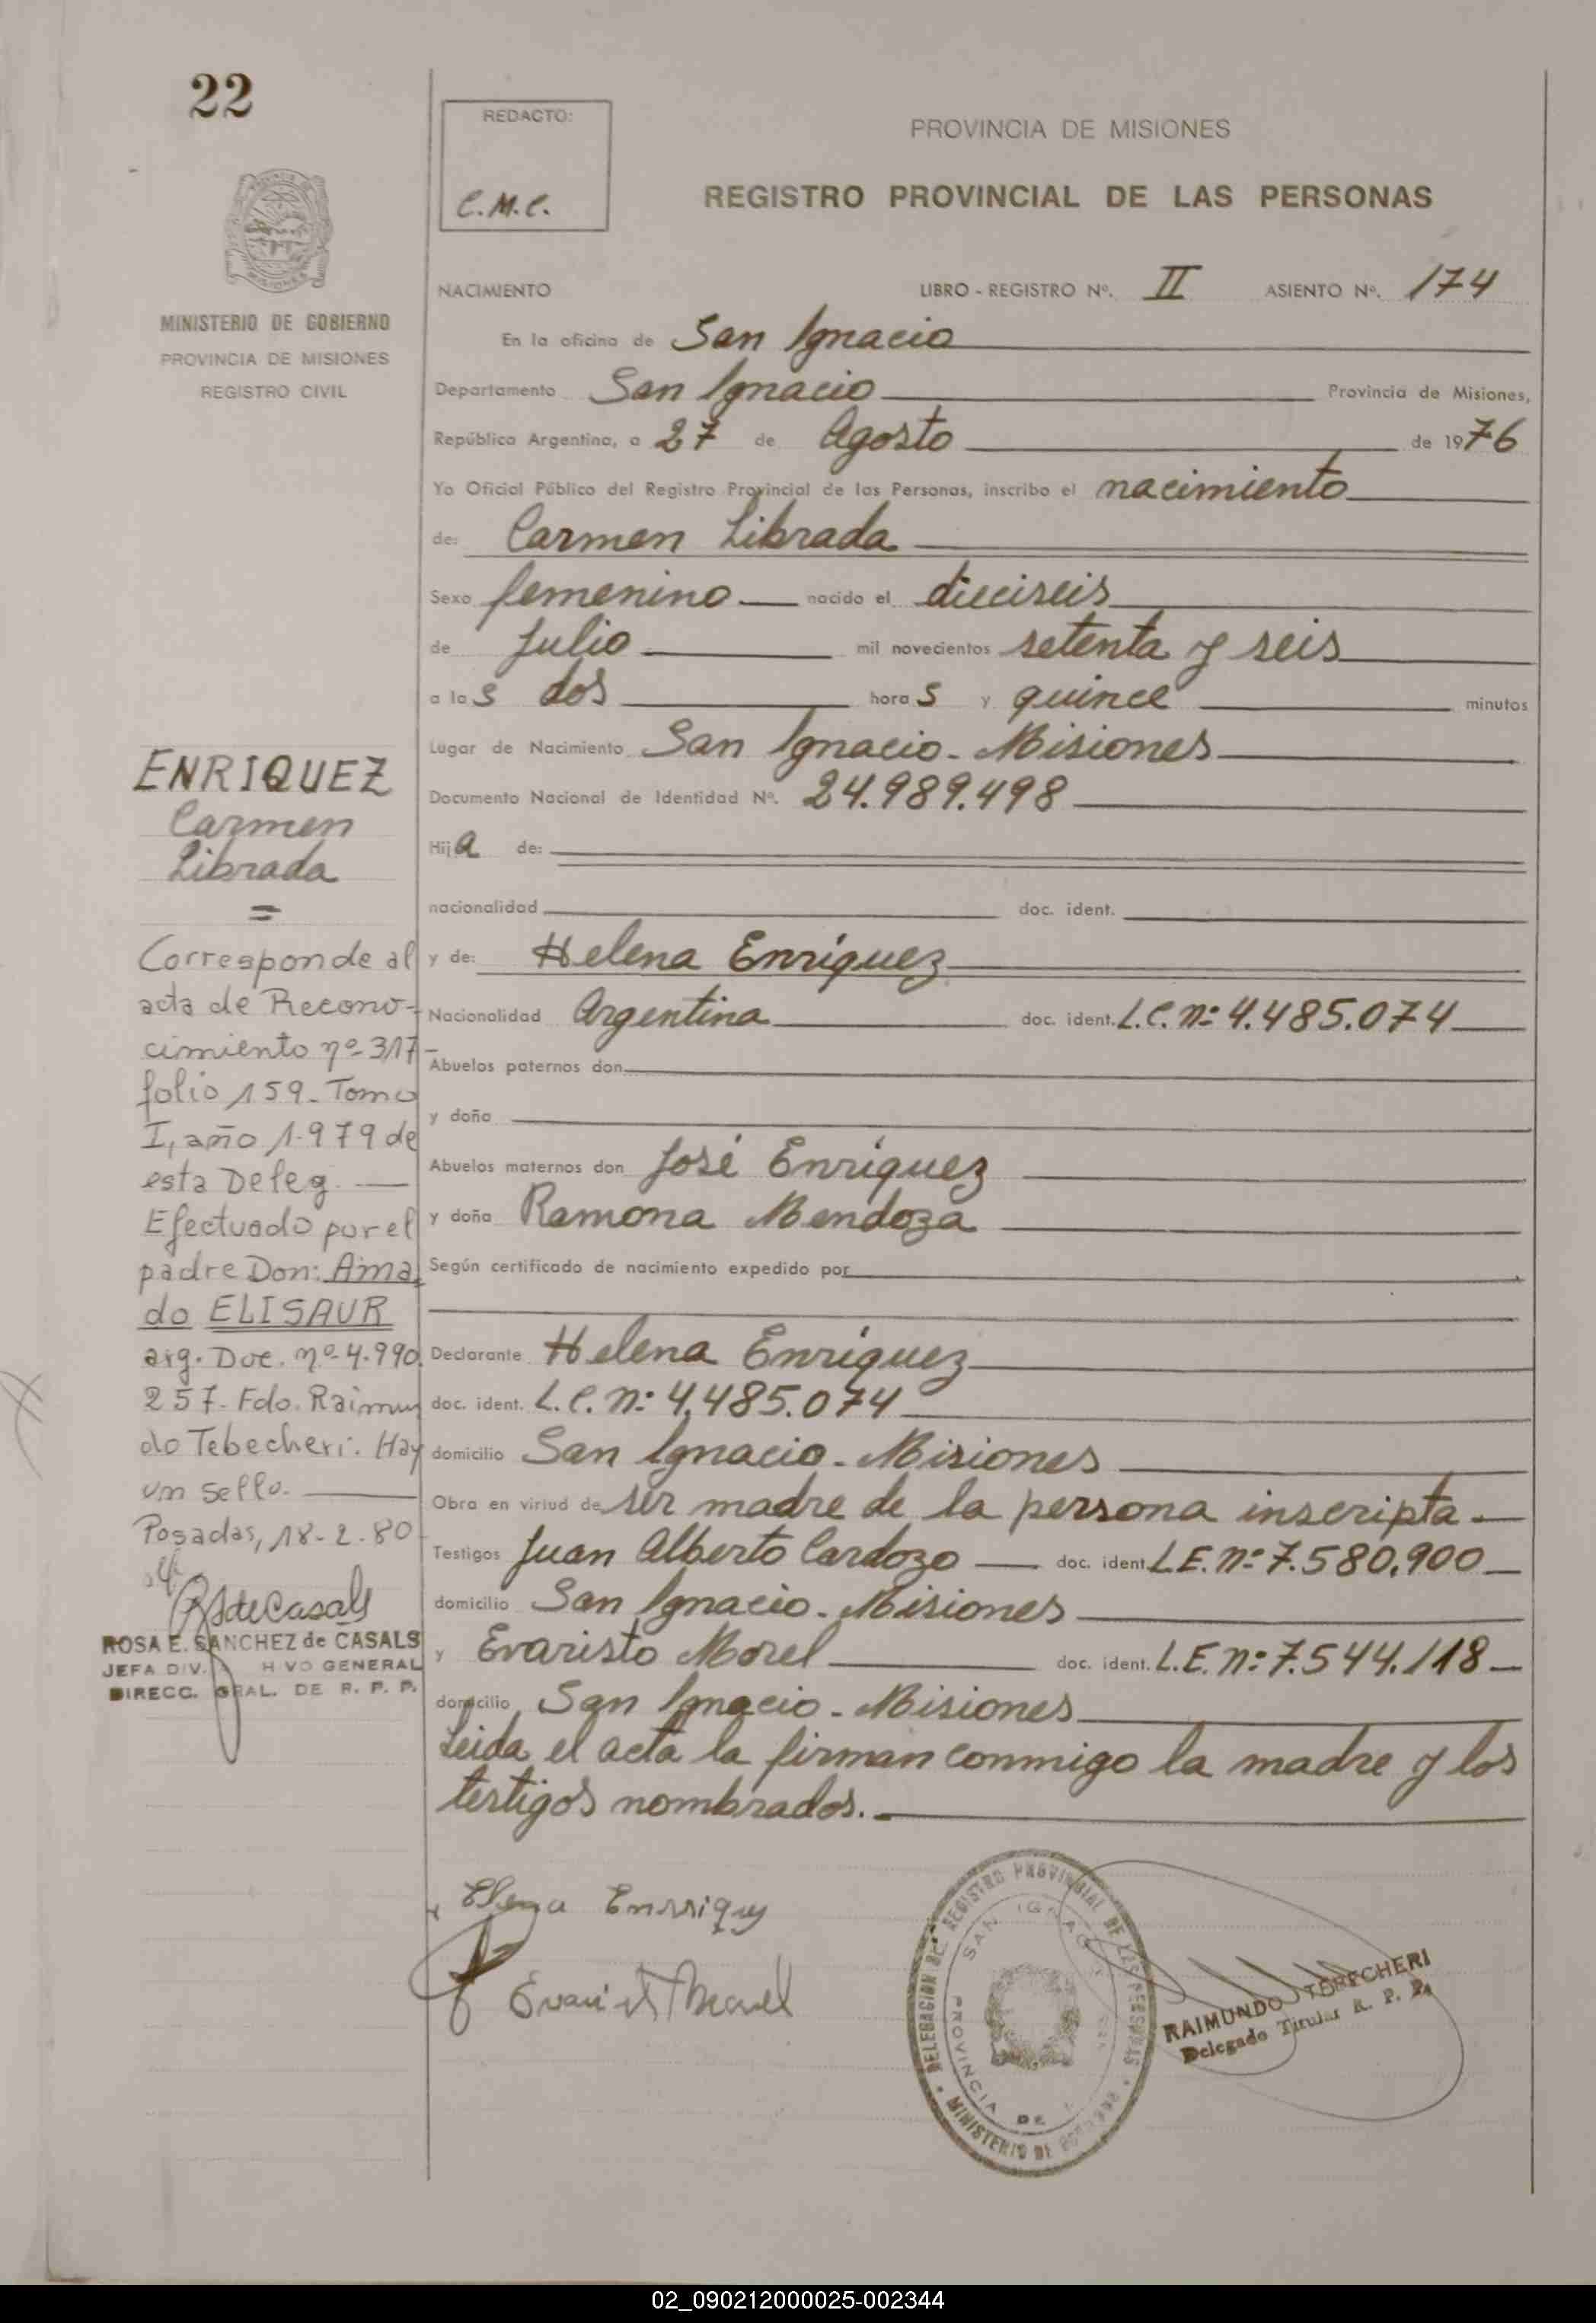 22
REDACTO:
C.M.C.
PROVINCIA DE MISIONES
REGISTRO PROVINCIAL DE LAS PERSONAS
MINISTERIO DE GOBIERNO
PROVINCIA DE MISIONES
REGISTRO CIVIL
NACIMIENTO LIBRO - REGISTRO Nº. II ASIENTO Nº. 174
En la oficina de San Ignacio
Departamento San Ignacio Provincia de Misiones,
República Argentina, a 27 de Agosto de 1976
Yo Oficial Público del Registro Provincial de las Personas, inscribo el nacimiento
de: Carmen Librada
Sexo femenino nacido el dieciseis
de Julio mil novecientos setenta y seis
a las dos horas y quince minutos
Lugar de Nacimiento San Ignacio - Misiones
Documento Nacional de Identidad Nº. 24.989.498
Hija de:
nacionalidad doc. ident.
y de: Helena Enríquez
Nacionalidad Argentina doc. ident. L.C. nº 4.485.074
Abuelos paternos don
y doña
Abuelos maternos don José Enríquez
y doña Ramona Mendoza
Según certificado de nacimiento expedido por
Declarante Helena Enríquez
doc. ident. L.C. nº 4.485.074
domicilio San Ignacio - Misiones
Obra en virtud de ser madre de la persona inscripta.
Testigos Juan Alberto Cardozo doc. ident. L.E. nº 7.580.900
domicilio San Ignacio - Misiones
y Evaristo Morel doc. ident. L.E. nº 7.544.118
domicilio San Ignacio - Misiones
Leida el acta la firman conmigo la madre y los
testigos nombrados.
ENRIQUEZ
Carmen
Librada
=
Corresponde al
acta de Recono-
cimiento nº 317
folio 159 - Tomo
I, año 1.979 de
esta Deleg.
Efectuado por el
padre Don: Ama
do ELISAUR
arg. Doc. nº 4.990.
257 - Fdo. Raimun
do Tebecheri. Hay
un sello.
Posadas, 18-2-80
RSdeCasals
ROSA E. SANCHEZ de CASALS
JEFA DIV. HIVO GENERAL
DIRECC. GRAL. DE R. P. P.
Elena Enrriquez
Evaristo Morel
DELEGACION DEL REGISTRO PROVINCIAL DE LAS PERSONAS
SAN IGNACIO
PROVINCIA DE
MINISTERIO DE GOBIERNO
RAIMUNDO TEBECHERI
Delegado Titular R. P. P.
02_090212000025-002344